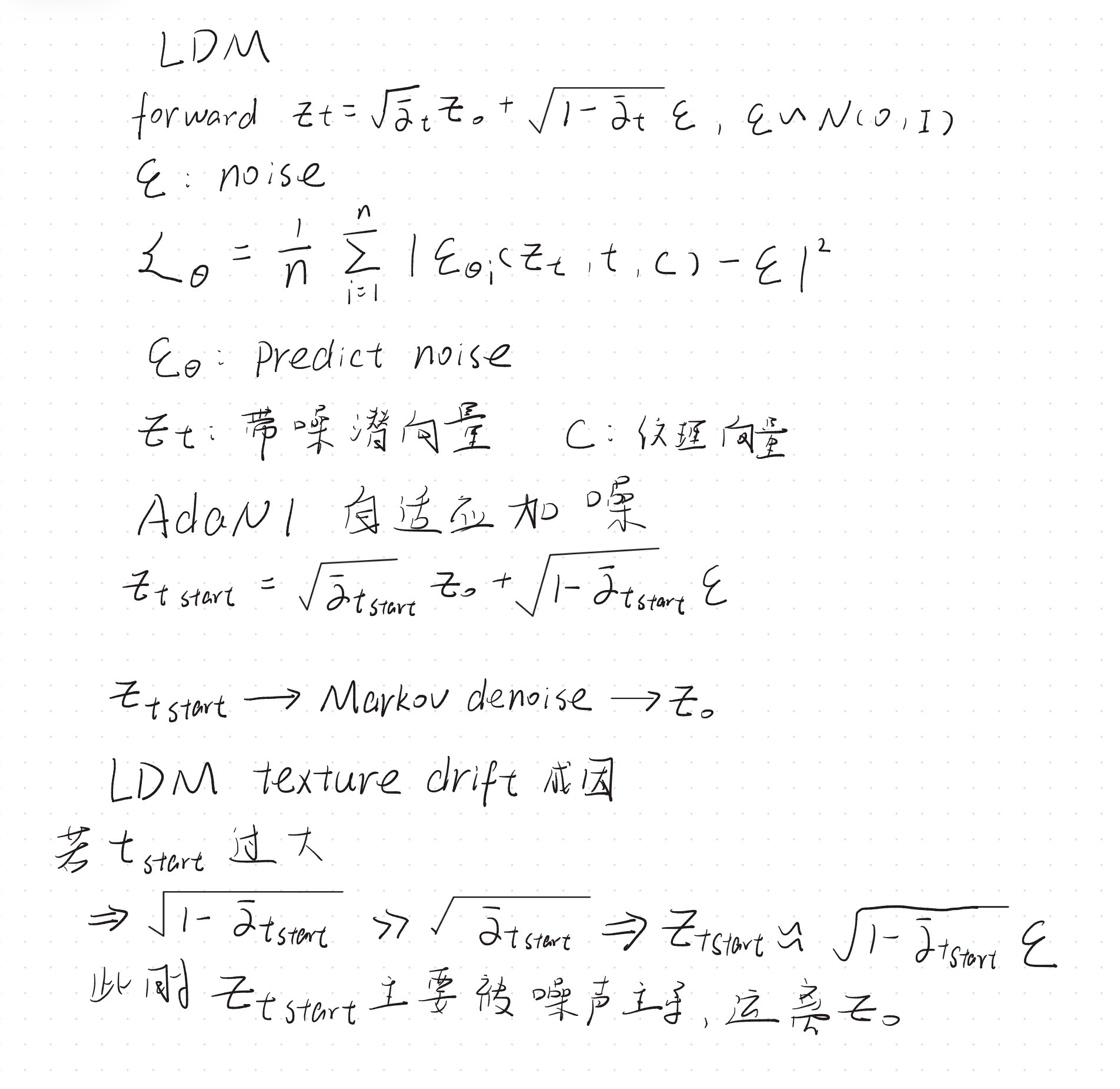 LDM
forward z_t = √ᾱ_t z_0 + √(1-ᾱ_t) ε, ε ∽ N(0, I)
ε: noise
ℒ_θ = 1/n ∑_{i=1}^{n} |ε_{θi}(z_t, t, c) - ε|²
ε_θ: Predict noise
z_t: 带噪潜向量 C: 纹理向量
AdaNI 自适应加噪
z_{t start} = √ᾱ_{t start} z_0 + √(1-ᾱ_{t start}) ε
z_{t start} → Markov denoise → z_0
LDM texture drift 成因
若 t_{start} 过大
⇒ √(1-ᾱ_{t start}) ≫ √ᾱ_{t start} ⇒ z_{t start} ∽ √(1-ᾱ_{t start}) ε
此时 z_{t start} 主要被噪声主导, 远离 z_0